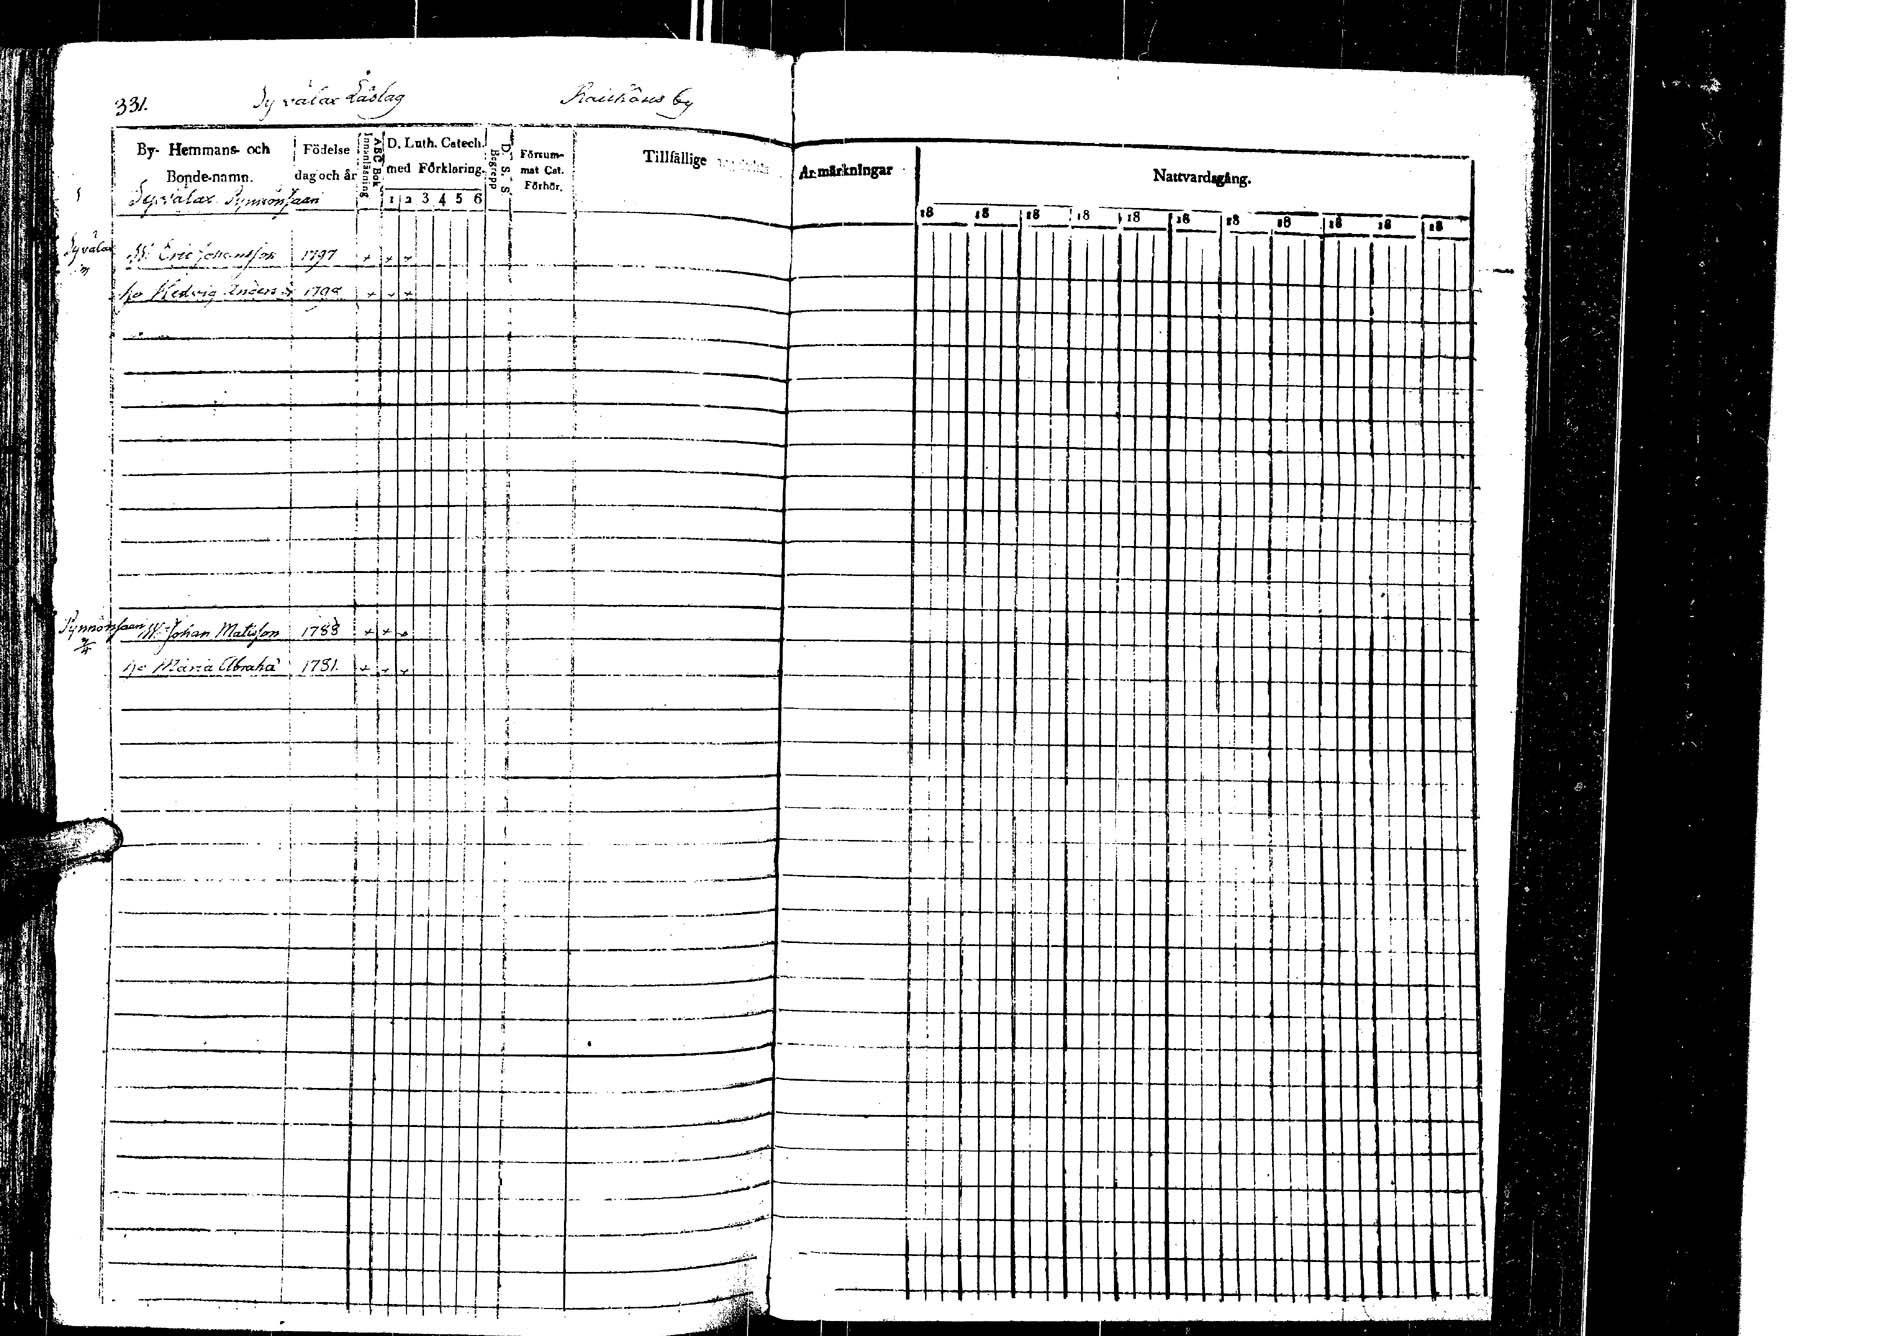 331. Syvälax Läslag Rauhous by
By- Hemmans- och Bonde-namn.
Födelse dag och år
Innanläsning
ABC Bok
D. Luth. Catech. med Förklaring.
1 2 3 4 5 6
Begrepp
D. S. S.
Försummat Cat. Förhör.
Tillfällige Anmärkningar
Nattvardsgång.
18 18 18 18 18 18 18 18 18 18 18
1 Syvälax Pynnönsaari
Syvälax B. Eric Johansson 1797 + + +
ho Hedvig Anders dr 1798 + + +
Pynnönsaari B. Johan Matsson 1788 + + +
ho Maria Abraha 1781. + + +